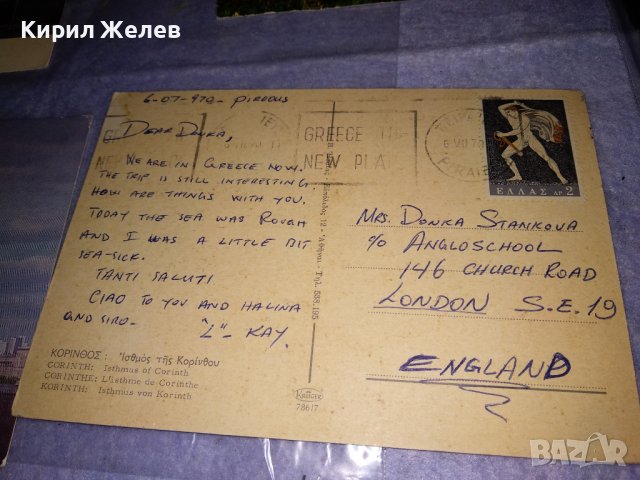 Кирил Желев
6-07-970- PIREOUS
DEAR DONKA,
WE ARE IN GREECE NOW.
THE TRIP IS STILL INTERESTING
HOW ARE THINGS WITH YOU.
TODAY THE SEA WAS ROUGH
AND I WAS A LITTLE BIT
SEA-SICK.
TANTI SALUTI
CIAO TO YOU AND HALINA
AND SIRO- "L"- KAY.
ΚΟΡΙΝΘΟΣ: Ἰσθμὸς τῆς Κορίνθου
CORINTH: Isthmus of Corinth
CORINTHE: L'isthme de Corinthe
KORINTH: Isthmus von Korinth
12 - Ἀθῆναι - Τηλ. 538.195
KRÜGER
78617
GREECE
NEW PLA
ΕΛΛΑΣ ΔΡ 2
MRS. DONKA STANKOVA
c/o ANGLOSCHOOL
146 CHURCH ROAD
LONDON S.E. 19
ENGLAND
BAZAR.bg